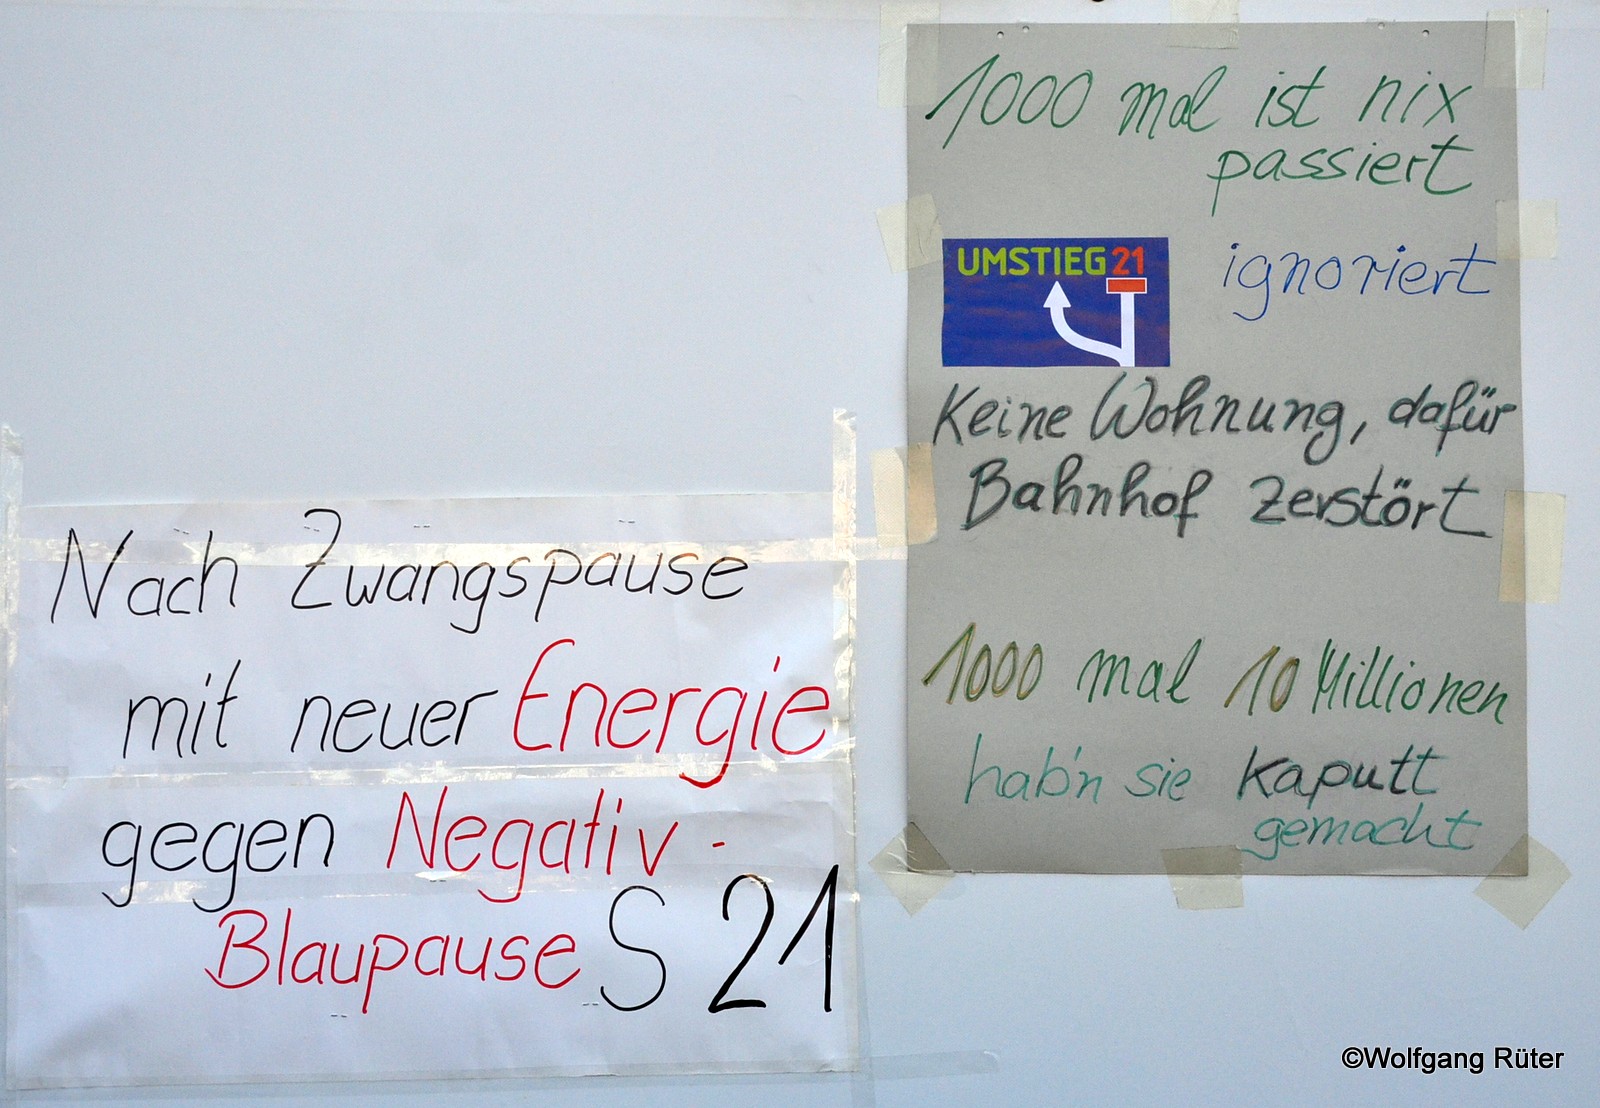 Nach Zwangspause
mit neuer Energie
gegen Negativ-
Blaupause S 21
1000 mal ist nix
passiert
UMSTIEG 21
ignoriert
Keine Wohnung, dafür
Bahnhof zerstört
1000 mal 10 Millionen
hab'n sie kaputt
gemacht
©Wolfgang Rüter